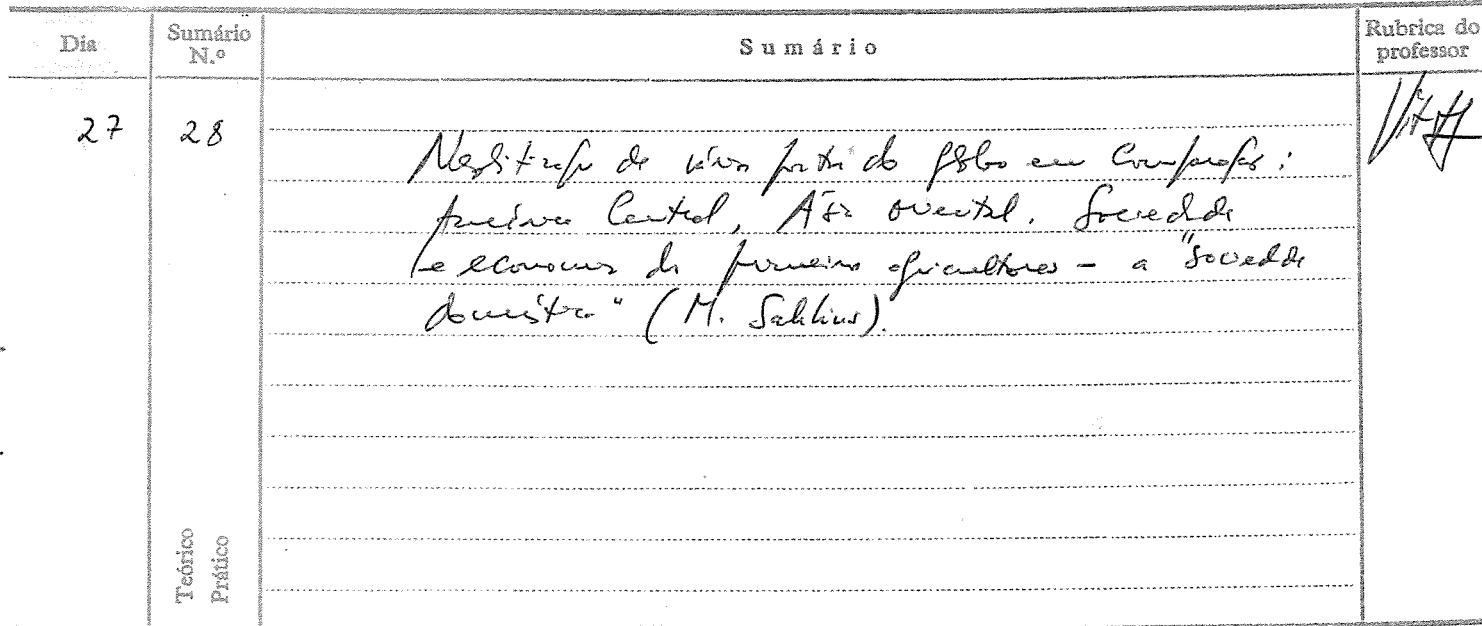 Dia
Sumário N.º
Sumário
Rubrica do professor
27
28
Neolitização de vários pontos do globo em comparação:
América Central, Ásia oriental. Sociedade
e economia dos primeiros agricultores - a "sociedade
doméstica" (M. Sahlins).
Teórico
Prático